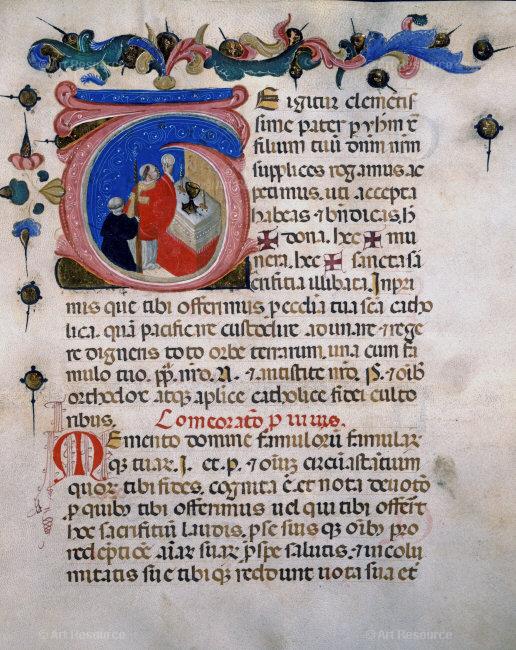 E igitur clemetis
sime pater p yhm x̄
filium tuū dnm nr̄m
supplices rogamus ac
petimus. uti accepta
habeas ⁊ bn̄dicas. h̄
✠ dona. hec ✠ mu
nera. hec ✠ sancta sa
crificia illibata. Inpri
mis que tibi offerimus p ecclīa tua scā catho
lica. quā pacificare custodire adunare ⁊ rege
re digneris toto orbe terrarum. una cum fa
mulo tuo. pp̄. nr̄o. N. ⁊ antistite nr̄o. ⁊ oīb
orthodox̄ atq; aplice catholice fidei culto
ribus. Comeoratō p uiuis.
Memento domine famulorū famular
q; tuar. ⁊ oīuz circūastantium
quor tibi fides. cognita ē. et nota deuotō
p quibȝ tibi offerimus uel qui tibi offerūt
hoc sacrifitiū laudis. p se suis q; oībȝ pro
redēptiōe aīar suar. p spe salutis. ⁊ incolu
mitatis sue tibi q; reddunt uota sua et̄
© Art Resource © Art Resource